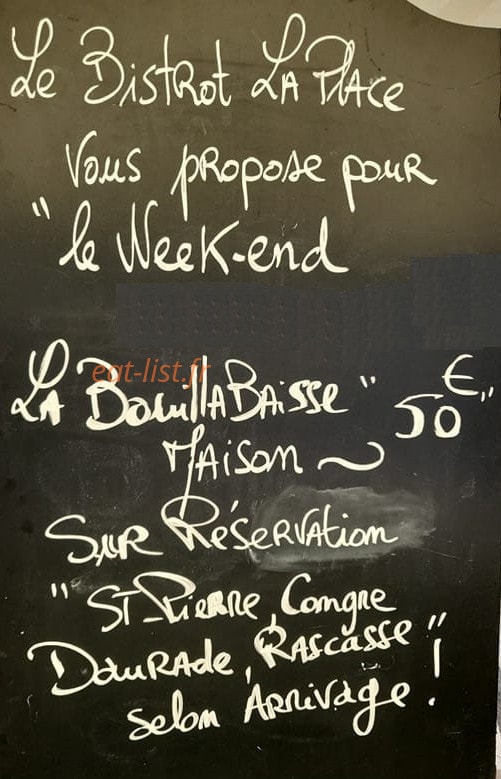 Le Bistrot La Place
Vous propose pour
"le Week-end
eat-list.fr
La BouillaBaisse" 50 €"
Maison ~
Sur Réservation
"St-Pierre, Congre
Daurade, Rascasse"
selon Arrivage !